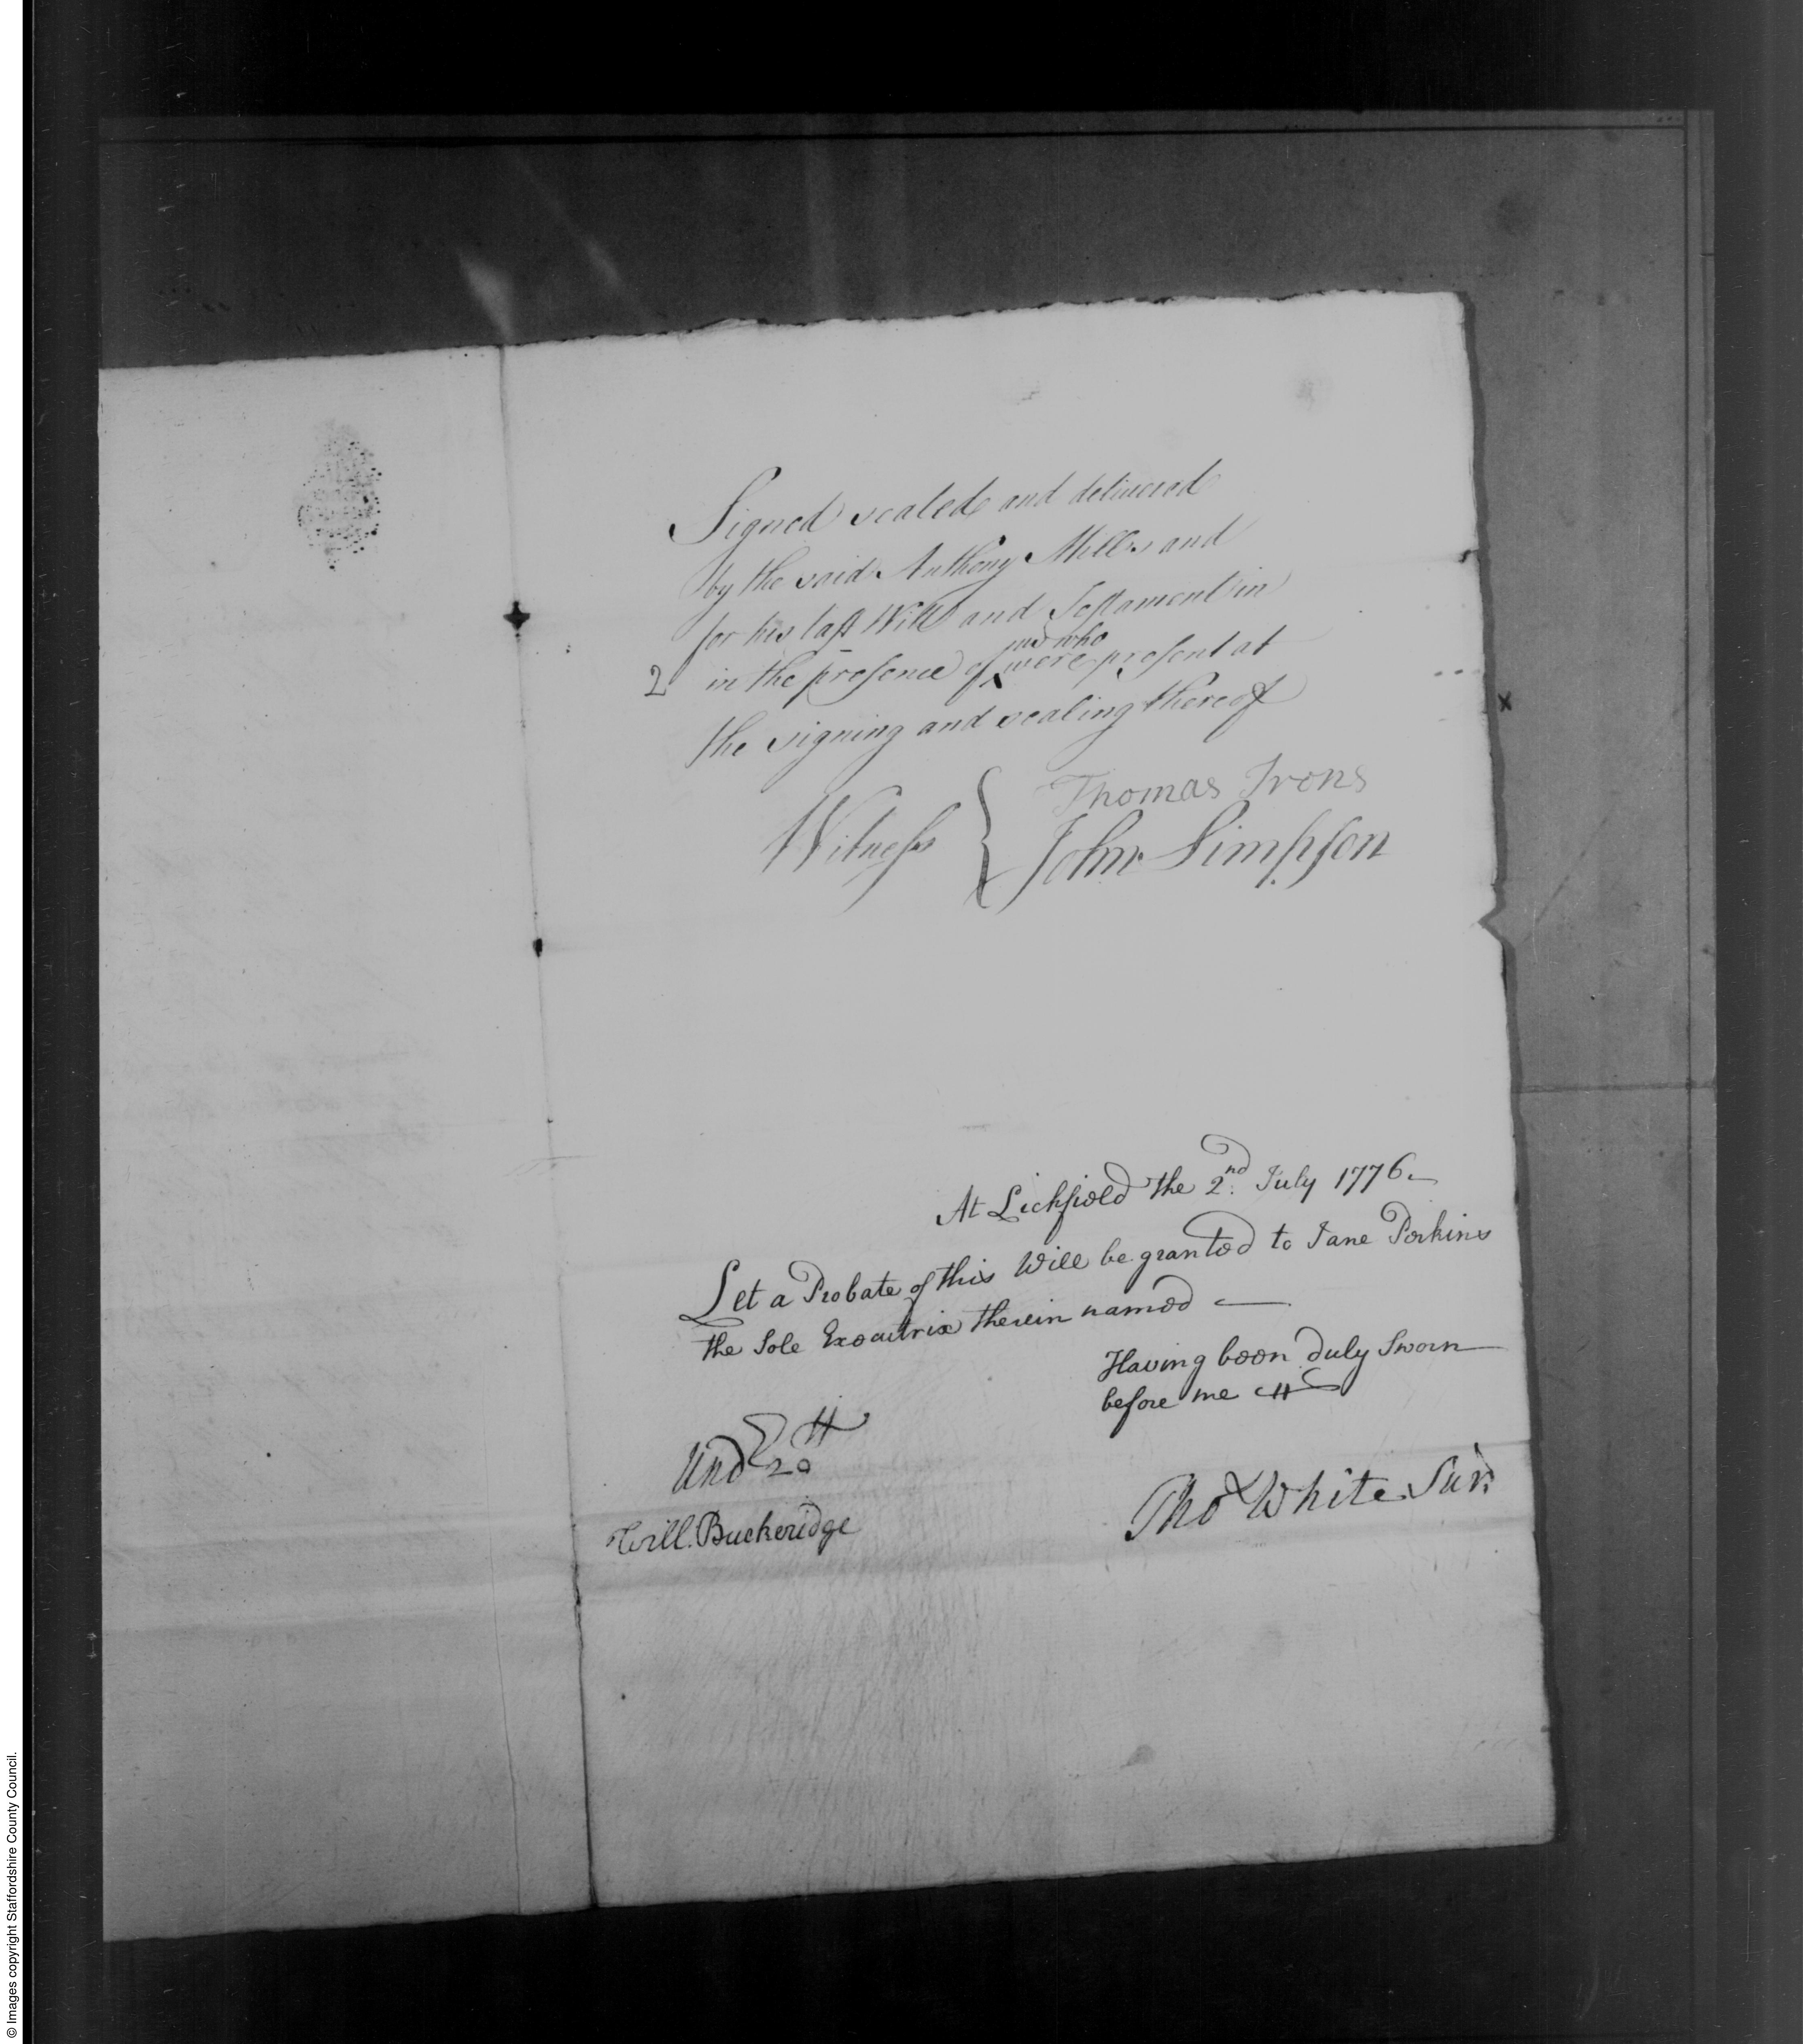 Signed sealed and delivered
by the said Anthony Mills and
for his last Will and Testament in
me who
2 in the presence of were present at
the signing and sealing thereof
Witness { Thomas Irons
John Simpson
At Lichfield the 2nd. July 1776.
Let a Probate of this Will be granted to Jane Perkins
the Sole Executrix therein named
Having been duly Sworn
before me
Und 20
Will. Buckeridge
Tho White Surr.
© Images copyright Staffordshire County Council.